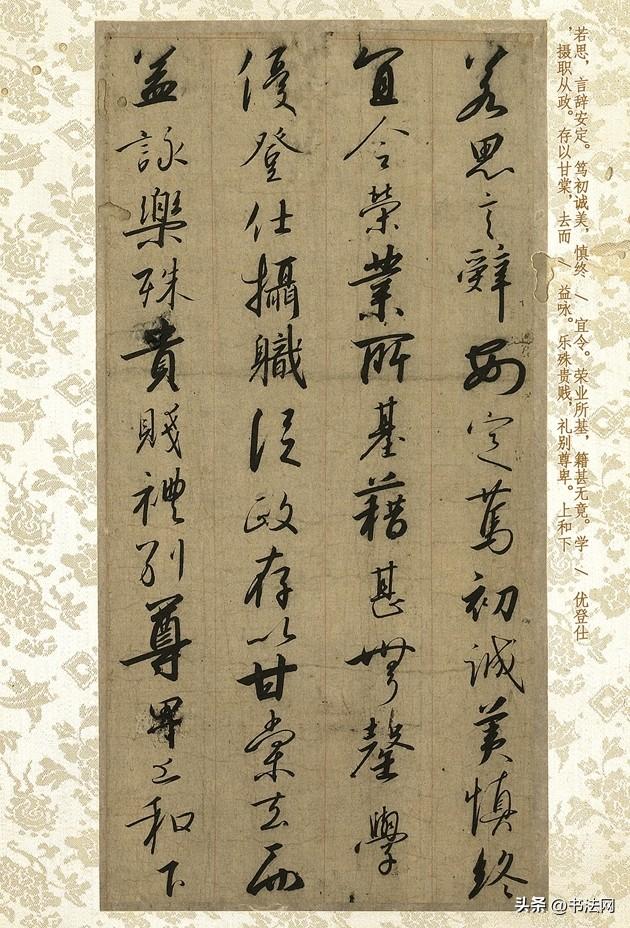 若思，言辞安定。笃初诚美，慎终 / 宜令。荣业所基，籍甚无竟。学 / 优登仕
，摄职从政。存以甘棠，去而 / 益咏。乐殊贵贱，礼别尊卑。上和下
若思言辭安定篤初誠美慎終
宜令榮業所基藉甚無罄學
優登仕攝職從政存以甘棠去而
益詠樂殊貴賤禮別尊卑上和下
头条 @书法网